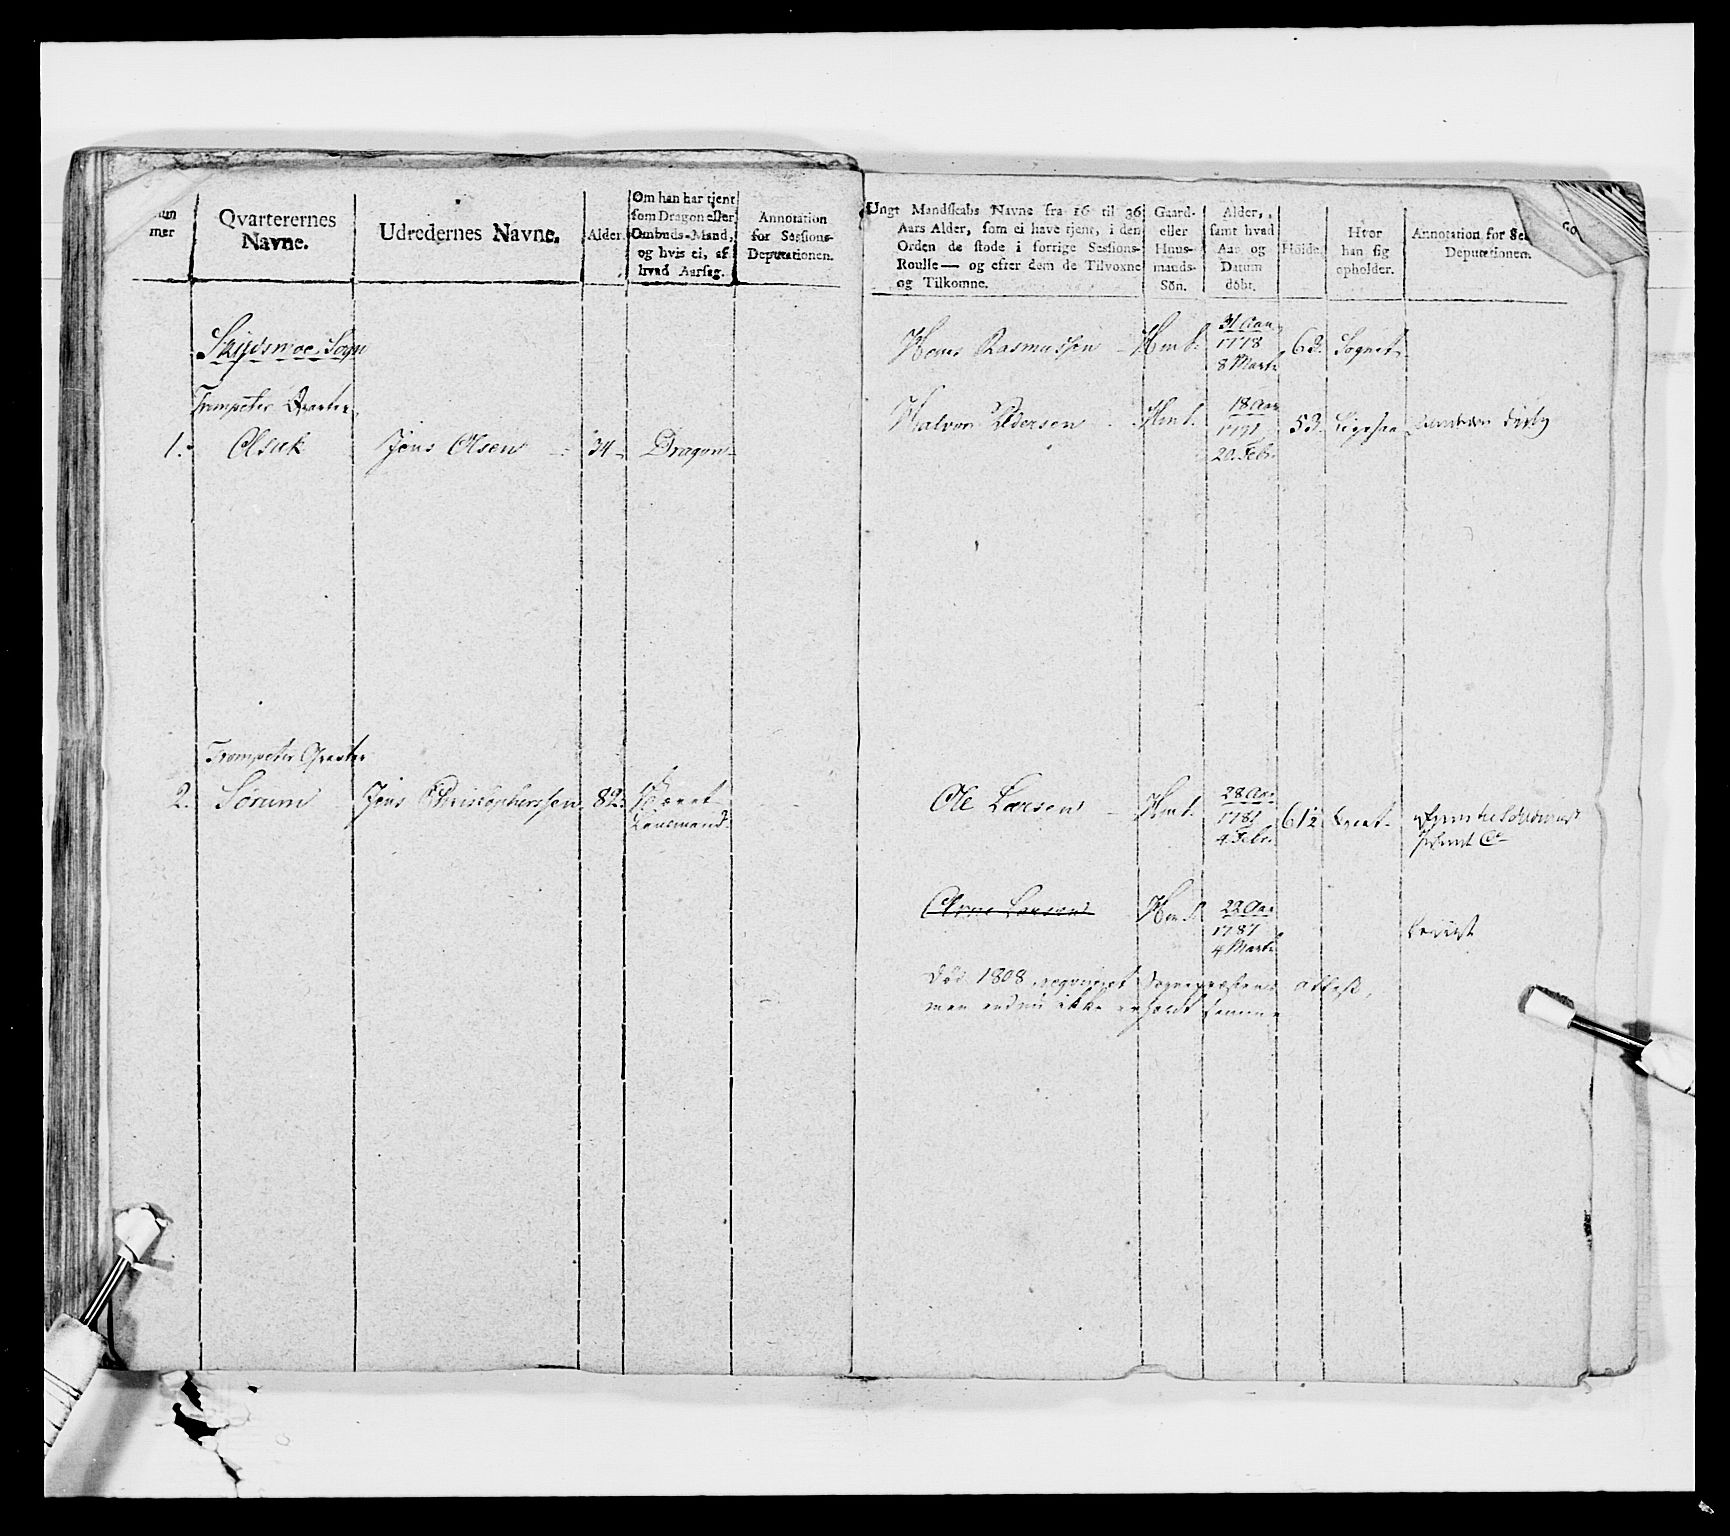 mer
Qvarterernes
Navne.
Udredernes Navne.
Alder.
Om han har tjent
som Dragon eller
Ombuds-Mand,
og hvis ei, af
hvad Aarsag.
Annotation
for Sessions-
Deputationen.
Ungt Mandskabs Navne fra 16 til 36
Aars Alder, som ei have tjent, i den
Orden de stode i forrige Sessions-
Roulle — og efter dem de Tilvoxne
og Tilkomne.
Gaard-
eller
Huus-
mands-
Sön.
Alder,
samt hvad
Aar og
Datum
döbt.
Höide.
Hvor
han sig
opholder.
Annotation for
Deputationen.
Skjedsmoe Sogn
Trompeter Qvarteer
1. Olsak Jens Olsen 34 Dragon
Hans Rasmussen Hmd. 31 Aar 1778 8 Marti 62. Sognet
Halvor Pedersen Hmd. 18 Aar 1791 20. Febr. 53. Ligesaa
Trompeter Qvarteer
2. Sörum Jens Christophersen 82.
Lensmand
Ole Larsen Hmd. 28 Aar 1781 4 Febr. 61½
Arne Larsen Hmd. 22 Aar 1787 4 Marti
död 1808, Sognepræstens attest,
men endnu ikke erholdt samme